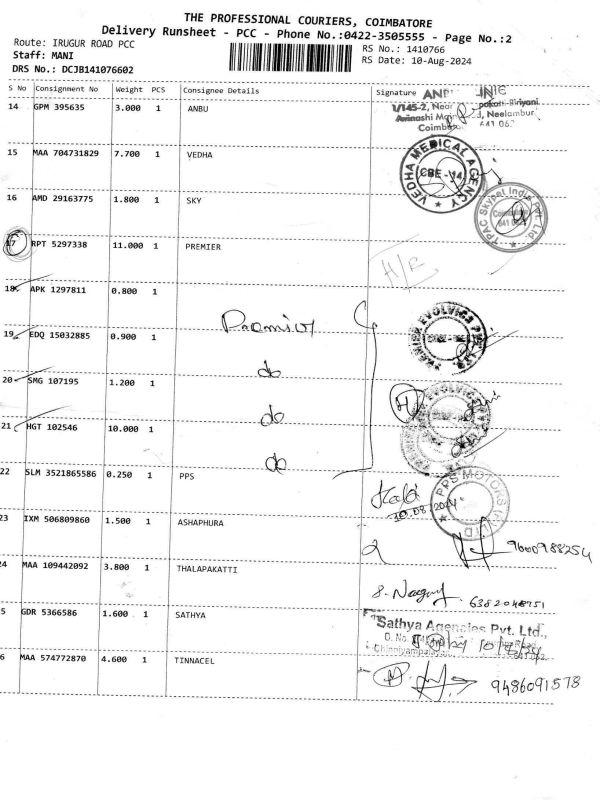 THE PROFESSIONAL COURIERS, COIMBATORE
Delivery Runsheet - PCC - Phone No.:0422-3505555 - Page No.:2
Route: IRUGUR ROAD PCC RS No.: 1410766
Staff: MANI RS Date: 10-Aug-2024
DRS No.: DCJB141076602
S No Consignment No Weight PCS Consignee Details Signature
14 GPM 395635 3.000 1 ANBU
1/145-2, Near
Avinashi Neelambur
Coimb 641 062
15 MAA 704731829 7.700 1 VEDHA
VEDHA MEDICAL AGENCY
CBE-14
16 AMD 29163775 1.800 1 SKY
TPAC Skypet India Pvt. Ltd.
17 RPT 5297338 11.000 1 PREMIER
H/R
18 APK 1297811 0.800 1
Premier
19 EDQ 15032885 0.900 1
do
20 SMG 107195 1.200 1
do
21 HGT 102546 10.000 1
do
22 SLM 3521865586 0.250 1 PPS
10.08.2024
PPS MOTORS (P) LTD
23 IXM 506809860 1.500 1 ASHAPHURA
9600988254
24 MAA 109442092 3.800 1 THALAPAKATTI
6382048751
5 GDR 5366586 1.600 1 SATHYA
Sathya Agencies Pvt. Ltd.,
D. No.
Chinniyampalayam
6 MAA 574772870 4.600 1 TINNACEL
9486091578